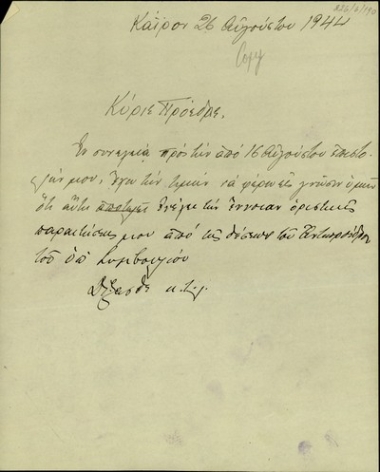 Κάϊρον 26 Αὐγούστου 1944
Copy
Κύριε Πρόεδρε,
Ἐν συνεχείᾳ πρὸς τὴν ἀπὸ 16 Αὐγούστου ἐπιστο-
λήν μου, ἔχω τὴν τιμὴν νὰ φέρω εἰς γνῶσιν ὑμῶν
ὅτι αὕτη ἐνεῖχε τὴν ἔννοιαν ὁριστικῆς
παραιτήσεώς μου ἀπὸ τῆς θέσεως τοῦ Ἀντιπροέδρου
τοῦ Συμβουλίου
Δέξασθε κ.τ.λ.